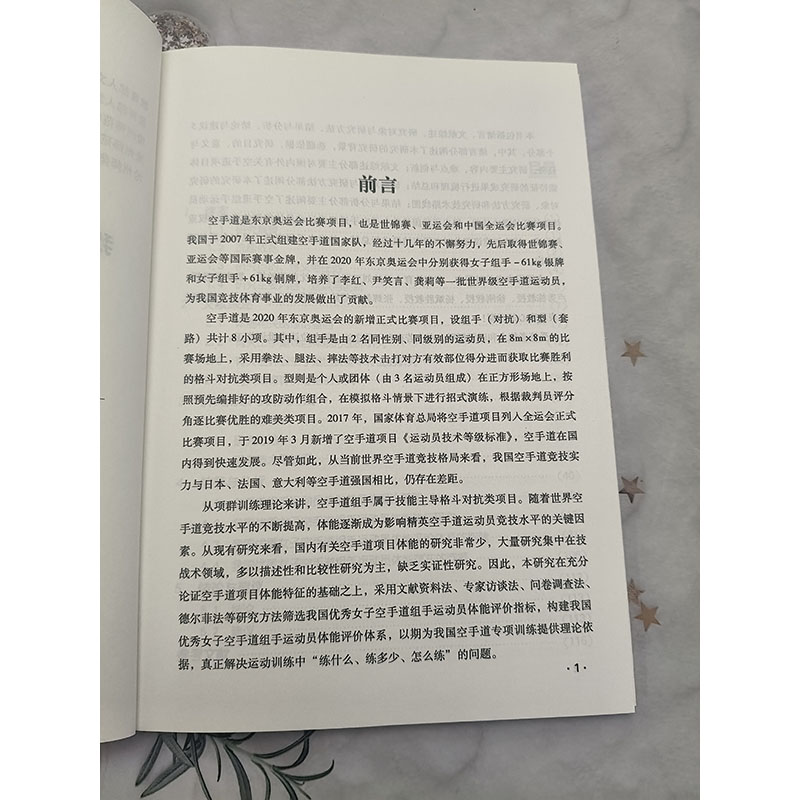 前言
空手道是东京奥运会比赛项目，也是世锦赛、亚运会和中国全运会比赛项目。
我国于 2007 年正式组建空手道国家队，经过十几年的不懈努力，先后取得世锦赛、
亚运会等国际赛事金牌，并在 2020 年东京奥运会中分别获得女子组手－61kg 银牌
和女子组手+61kg 铜牌，培养了李红、尹笑言、龚莉等一批世界级空手道运动员，
为我国竞技体育事业的发展做出了贡献。
空手道是 2020 年东京奥运会的新增正式比赛项目，设组手（对抗）和型（套
路）共计 8 小项。其中，组手是由 2 名同性别、同级别的运动员，在 8m×8m 的比
赛场地上，采用拳法、腿法、摔法等技术击打对方有效部位得分进而获取比赛胜利
的格斗对抗类项目。型则是个人或团体（由 3 名运动员组成）在正方形场地上，按
照预先编排好的攻防动作组合，在模拟格斗情景下进行招式演练，根据裁判员评分
角逐比赛优胜的难美类项目。2017 年，国家体育总局将空手道项目列入全运会正式
比赛项目，于 2019 年 3 月新增了空手道项目《运动员技术等级标准》，空手道在国
内得到快速发展。尽管如此，从当前世界空手道竞技格局来看，我国空手道竞技实
力与日本、法国、意大利等空手道强国相比，仍存在差距。
从项群训练理论来讲，空手道组手属于技能主导格斗对抗类项目。随着世界空
手道竞技水平的不断提高，体能逐渐成为影响精英空手道运动员竞技水平的关键因
素。从现有研究来看，国内有关空手道项目体能的研究非常少，大量研究集中在技
战术领域，多以描述性和比较性研究为主，缺乏实证性研究。因此，本研究在充分
论证空手道项目体能特征的基础之上，采用文献资料法、专家访谈法、问卷调查法、
德尔菲法等研究方法筛选我国优秀女子空手道组手运动员体能评价指标，构建我国
优秀女子空手道组手运动员体能评价体系，以期为我国空手道专项训练提供理论依
据，真正解决运动训练中“练什么、练多少、怎么练”的问题。
·1·